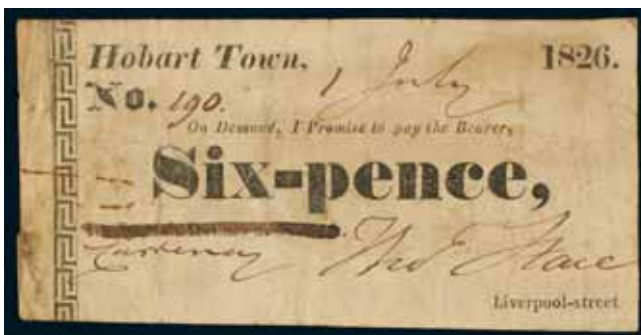 Hobart Town, 1 July 1826.
No. 190.
On Demand, I Promise to pay the Bearer,
Six-pence,
Currency
Liverpool-street